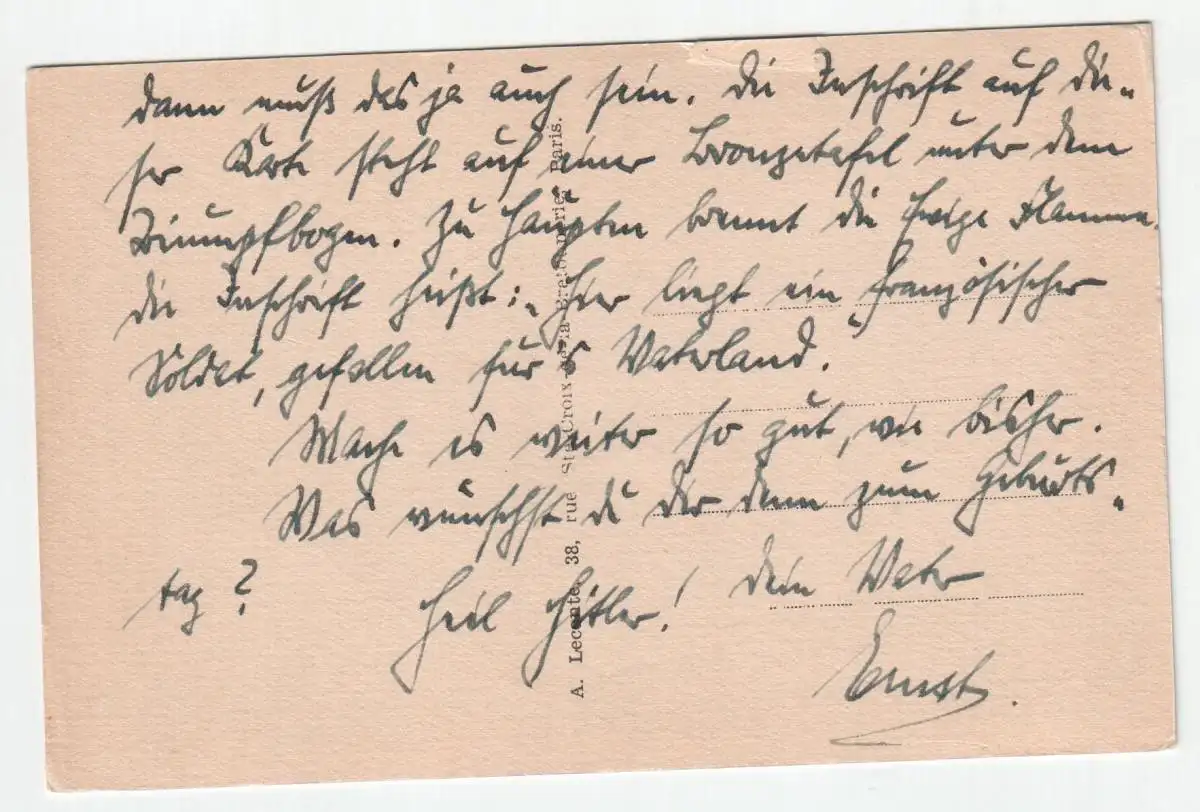 dann muß das ja auch sein. Die Inschrift auf die-
ser Karte steht auf einer Bronzetafel unter dem
Triumpfbogen. Zu Häupten brennt die Ewige Flamme.
die Inschrift heißt: „Hier liegt ein französischer
Soldat, gefallen für's Vaterland."
Mache es weiter so gut, wie bisher.
Was wünschst du dir denn zum Geburts-
tag? Heil Hitler! Dein Vater
Ernst.
A. Leconte, 38, rue Ste-Croix-de-la-Bretonnerie, Paris.